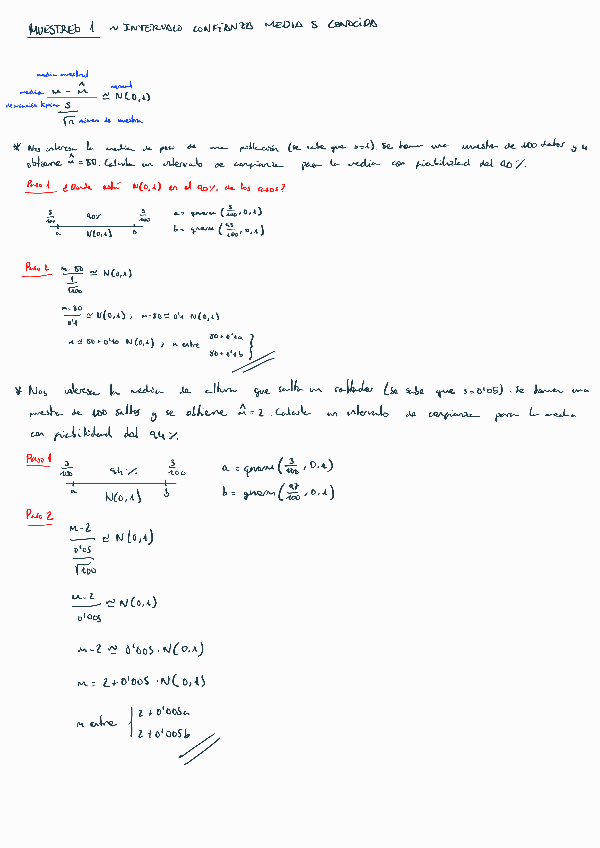 MUESTREO 1 ~ INTERVALO CONFIANZA MEDIA S CONOCIDA
media muestral
media m - m̂ normal
desviación típica s ≃ N(0,1)
√n número de muestra
* Nos interesa la media de peso de una población (se sabe que s=1). Se toman una muestra de 100 datos y se
obtiene m̂ = 80. Calcula un intervalo de confianza para la media con fiabilidad del 90%.
Paso 1 ¿Dónde está N(0,1) en el 90% de los casos?
5/100 90% 5/100 a = qnorm (5/100, 0, 1)
a N(0,1) b b = qnorm (95/100, 0, 1)
Paso 2 m-80 / (1/√100) ≃ N(0,1)
m-80 / 0'1 ≃ N(0,1), m-80 ≃ 0'1 N(0,1)
m ≃ 80 + 0'10 N(0,1), m entre 80 + 0'1a
80 + 0'1b
* Nos interesa la media de altura que salta un saltador (se sabe que s=0'05). Se toman una
muestra de 100 saltos y se obtiene m̂ = 2. Calcula un intervalo de confianza para la media
con fiabilidad del 94%.
Paso 1 3/100 94% 3/100 a = qnorm (3/100, 0, 1)
a N(0,1) b b = qnorm (97/100, 0, 1)
Paso 2
m-2 / (0'05/√100) ≃ N(0,1)
m-2 / 0'005 ≃ N(0,1)
m-2 ≃ 0'005 · N(0,1)
m = 2 + 0'005 · N(0,1)
m entre { 2 + 0'005a
2 + 0'005b